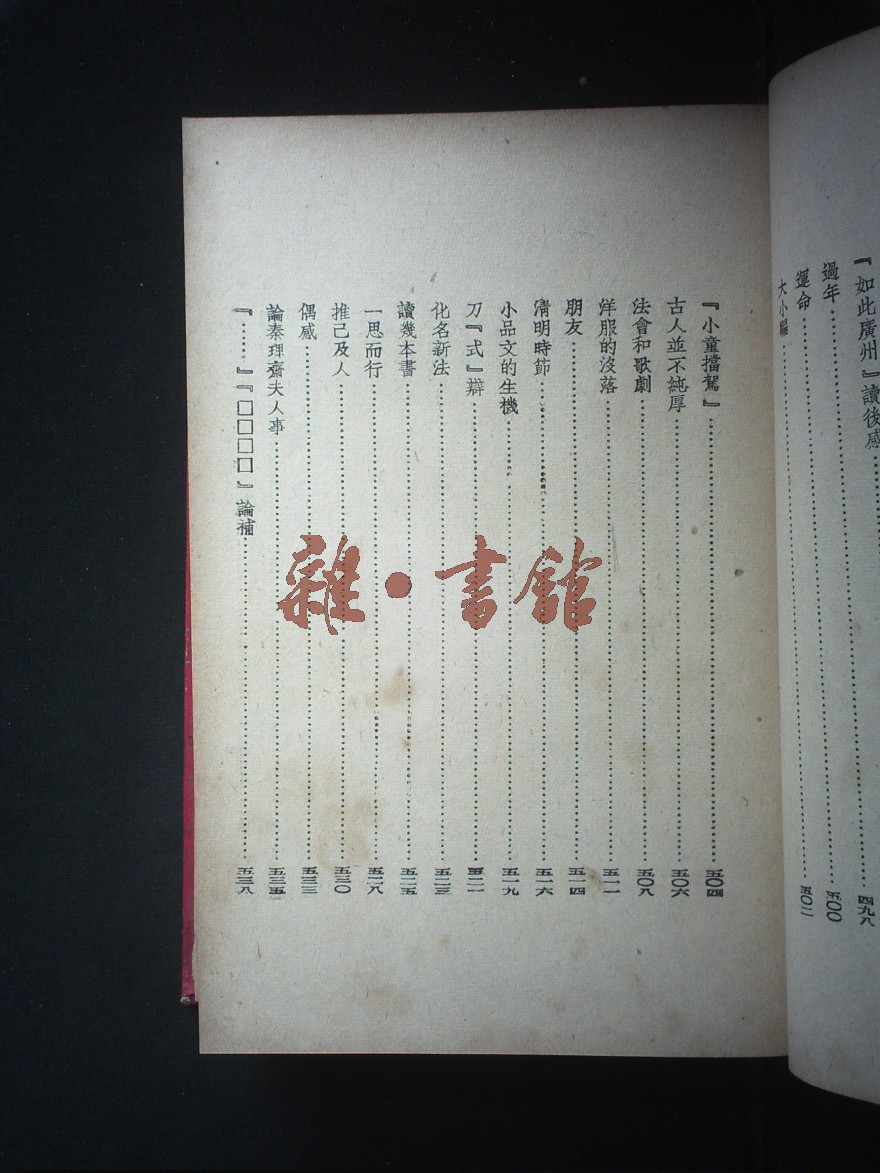 『如此廣州』讀後感……四九八
過年……五〇〇
運命……五〇二
大小騙
『小童擋駕』……五〇四
古人並不純厚……五〇六
法會和歌劇……五〇八
洋服的沒落……五一一
朋友……五一四
淸明時節……五一六
小品文的生機……五一九
刀『式』辯……五二一
化名新法……五二三
讀幾本書……五二五
一思而行……五二八
推己及人……五三〇
偶感……五三三
論秦理齋夫人事……五三五
『……』『□□□□』論補……五三八
雜·書館